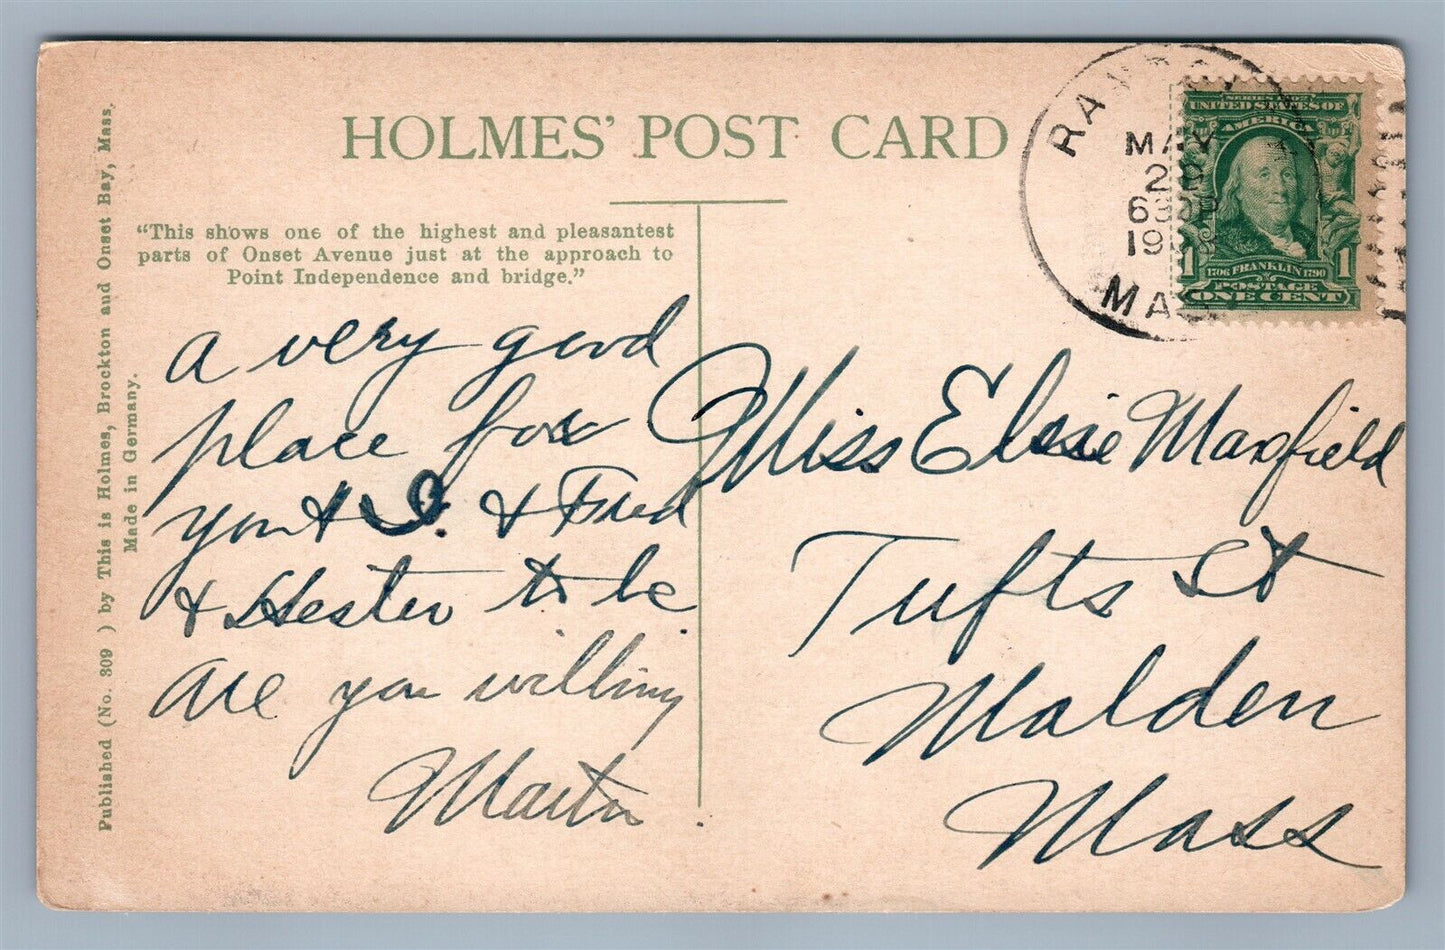 HOLMES' POST CARD
"This shows one of the highest and pleasantest
parts of Onset Avenue just at the approach to
Point Independence and bridge."
Published (No. 309 ) by This is Holmes, Brockton and Onset Bay, Mass.
Made in Germany.
a very good
place for
you & I. & Fred
& Hester to be
are you willing
Martin
Miss Elsie Maxfield
Tufts St
Malden
Mass
MAY
MAS
UNITED STATES OF
AMERICA
1706 FRANKLIN 1790
1 1
POSTAGE
ONE CENT